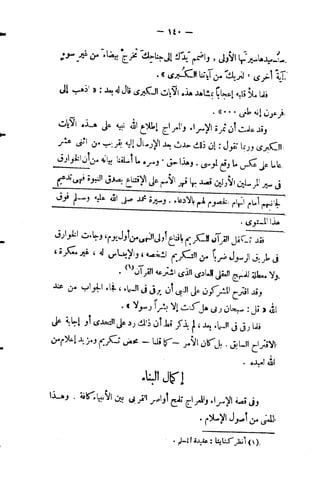 — ١٤٠ —
سنعيدها سيرتها الأولى ، واضمم يدك إلى جناحك تخرج بيضاء من غير سوء
آية أخرى ، لنريك من آياتنا الكبرى » .
فلما ملأ قلبه إعجاباً بمشاهد هذه الآيات الكبرى قال له بعد : « اذهب إلى
فرعون إنه طغى ٠٠٠ »
وقد علمت أن ثمرة الإسراء والمعراج إطلاع الله نبيه على هذه الآيات
الكبرى وربما تقول : إن ذلك حدث بعد الإرسال إليه بقريب من اثنى عشر
عاما على عكس ما وقع لموسى . وهذا حق ، وسره ما أسلفنا بيانه من أن الخوارق
فى سير المرسلين الأولين قصد بها قهر الأمم على الإقتناع بصدق النبوة فهى تدعيم
لجانبهم أمام اتهام الخصوم لهم بالادعاء . وسيرة محمد صلى الله عليه وسلم فوق
هذا المستوى .
فقد تكفل القرآن الكريم بإقناع أولى النهى من أول يوم ، وجاءت الخوارق
فى طريق الرسول ضرباً من التكريم لشخصه ، والإيناس له ، غير معكرة ،
ولا معطلة للمنهج العقلى العادى الذى اشترعه القرآن (١) .
وقد اقترح المشركون على النبى أن يرقى فى السماء ، فجاء الجواب من عند
الله « قل : سبحان ربى هل كنت إلا بشراً رسولا » .
فلما رقى فى السماء بعد ، لم يذكر قط أن ذلك رد على التحدى أو إجابة على
الاقتراح السابق . بل كان الأمر — كما قلنا — محض تكريم ومزيد إعلام من
الله لعبده .
إكمال البناء
وفى قصة الإسراء والمعراج تلمح أواصر القربى بين الأنبياء كافة . وهذا
المعنى من أصول الإسلام .
(١) أنظر كتابنا : عقيدة المسلم .